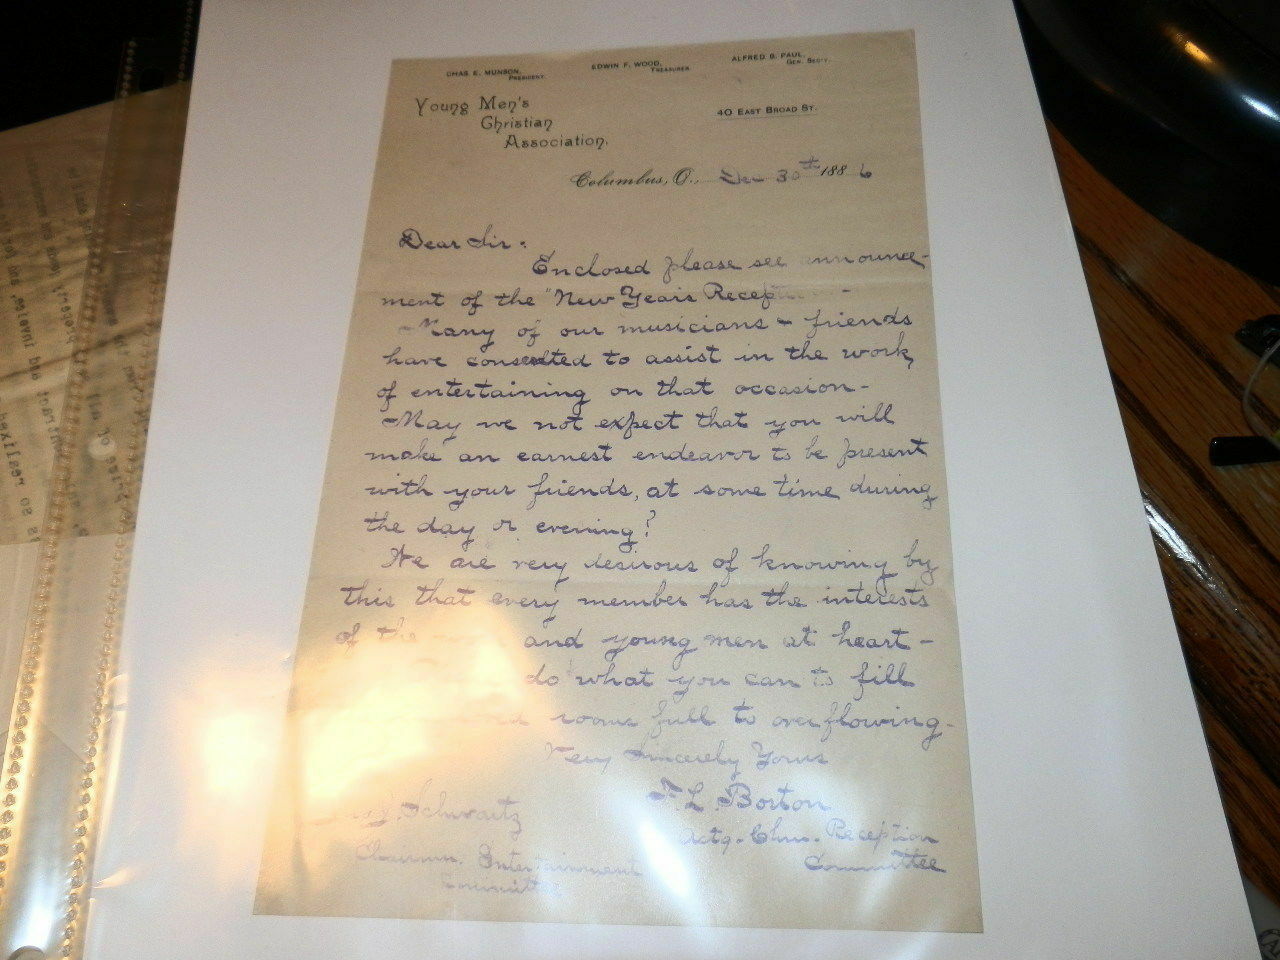 CHAS. E. MUNSON, PRESIDENT.
EDWIN F. WOOD, TREASURER.
ALFRED B. PAUL, GEN. SEC'Y.
Young Men's
Christian
Association.
40 EAST BROAD ST.
Columbus, O., Dec 30th 1886
Dear Sir:
Enclosed please see announce-
ment of the "New Years
Many of our musicians - friends
have consented to assist in the work
of entertaining on that occasion-
May we not expect that you will
make an earnest endeavor to be present
with your friends, at some time during
the day or evening?
We are very desirous of knowing by
this that every member has the interests
of the and young men at heart-
do what you can to fill
rooms full to overflowing-
Very Sincerely Yours
F. L. Borton
Actg. Chm. Reception
Committee
Schwartz
Chairman. Entertainment